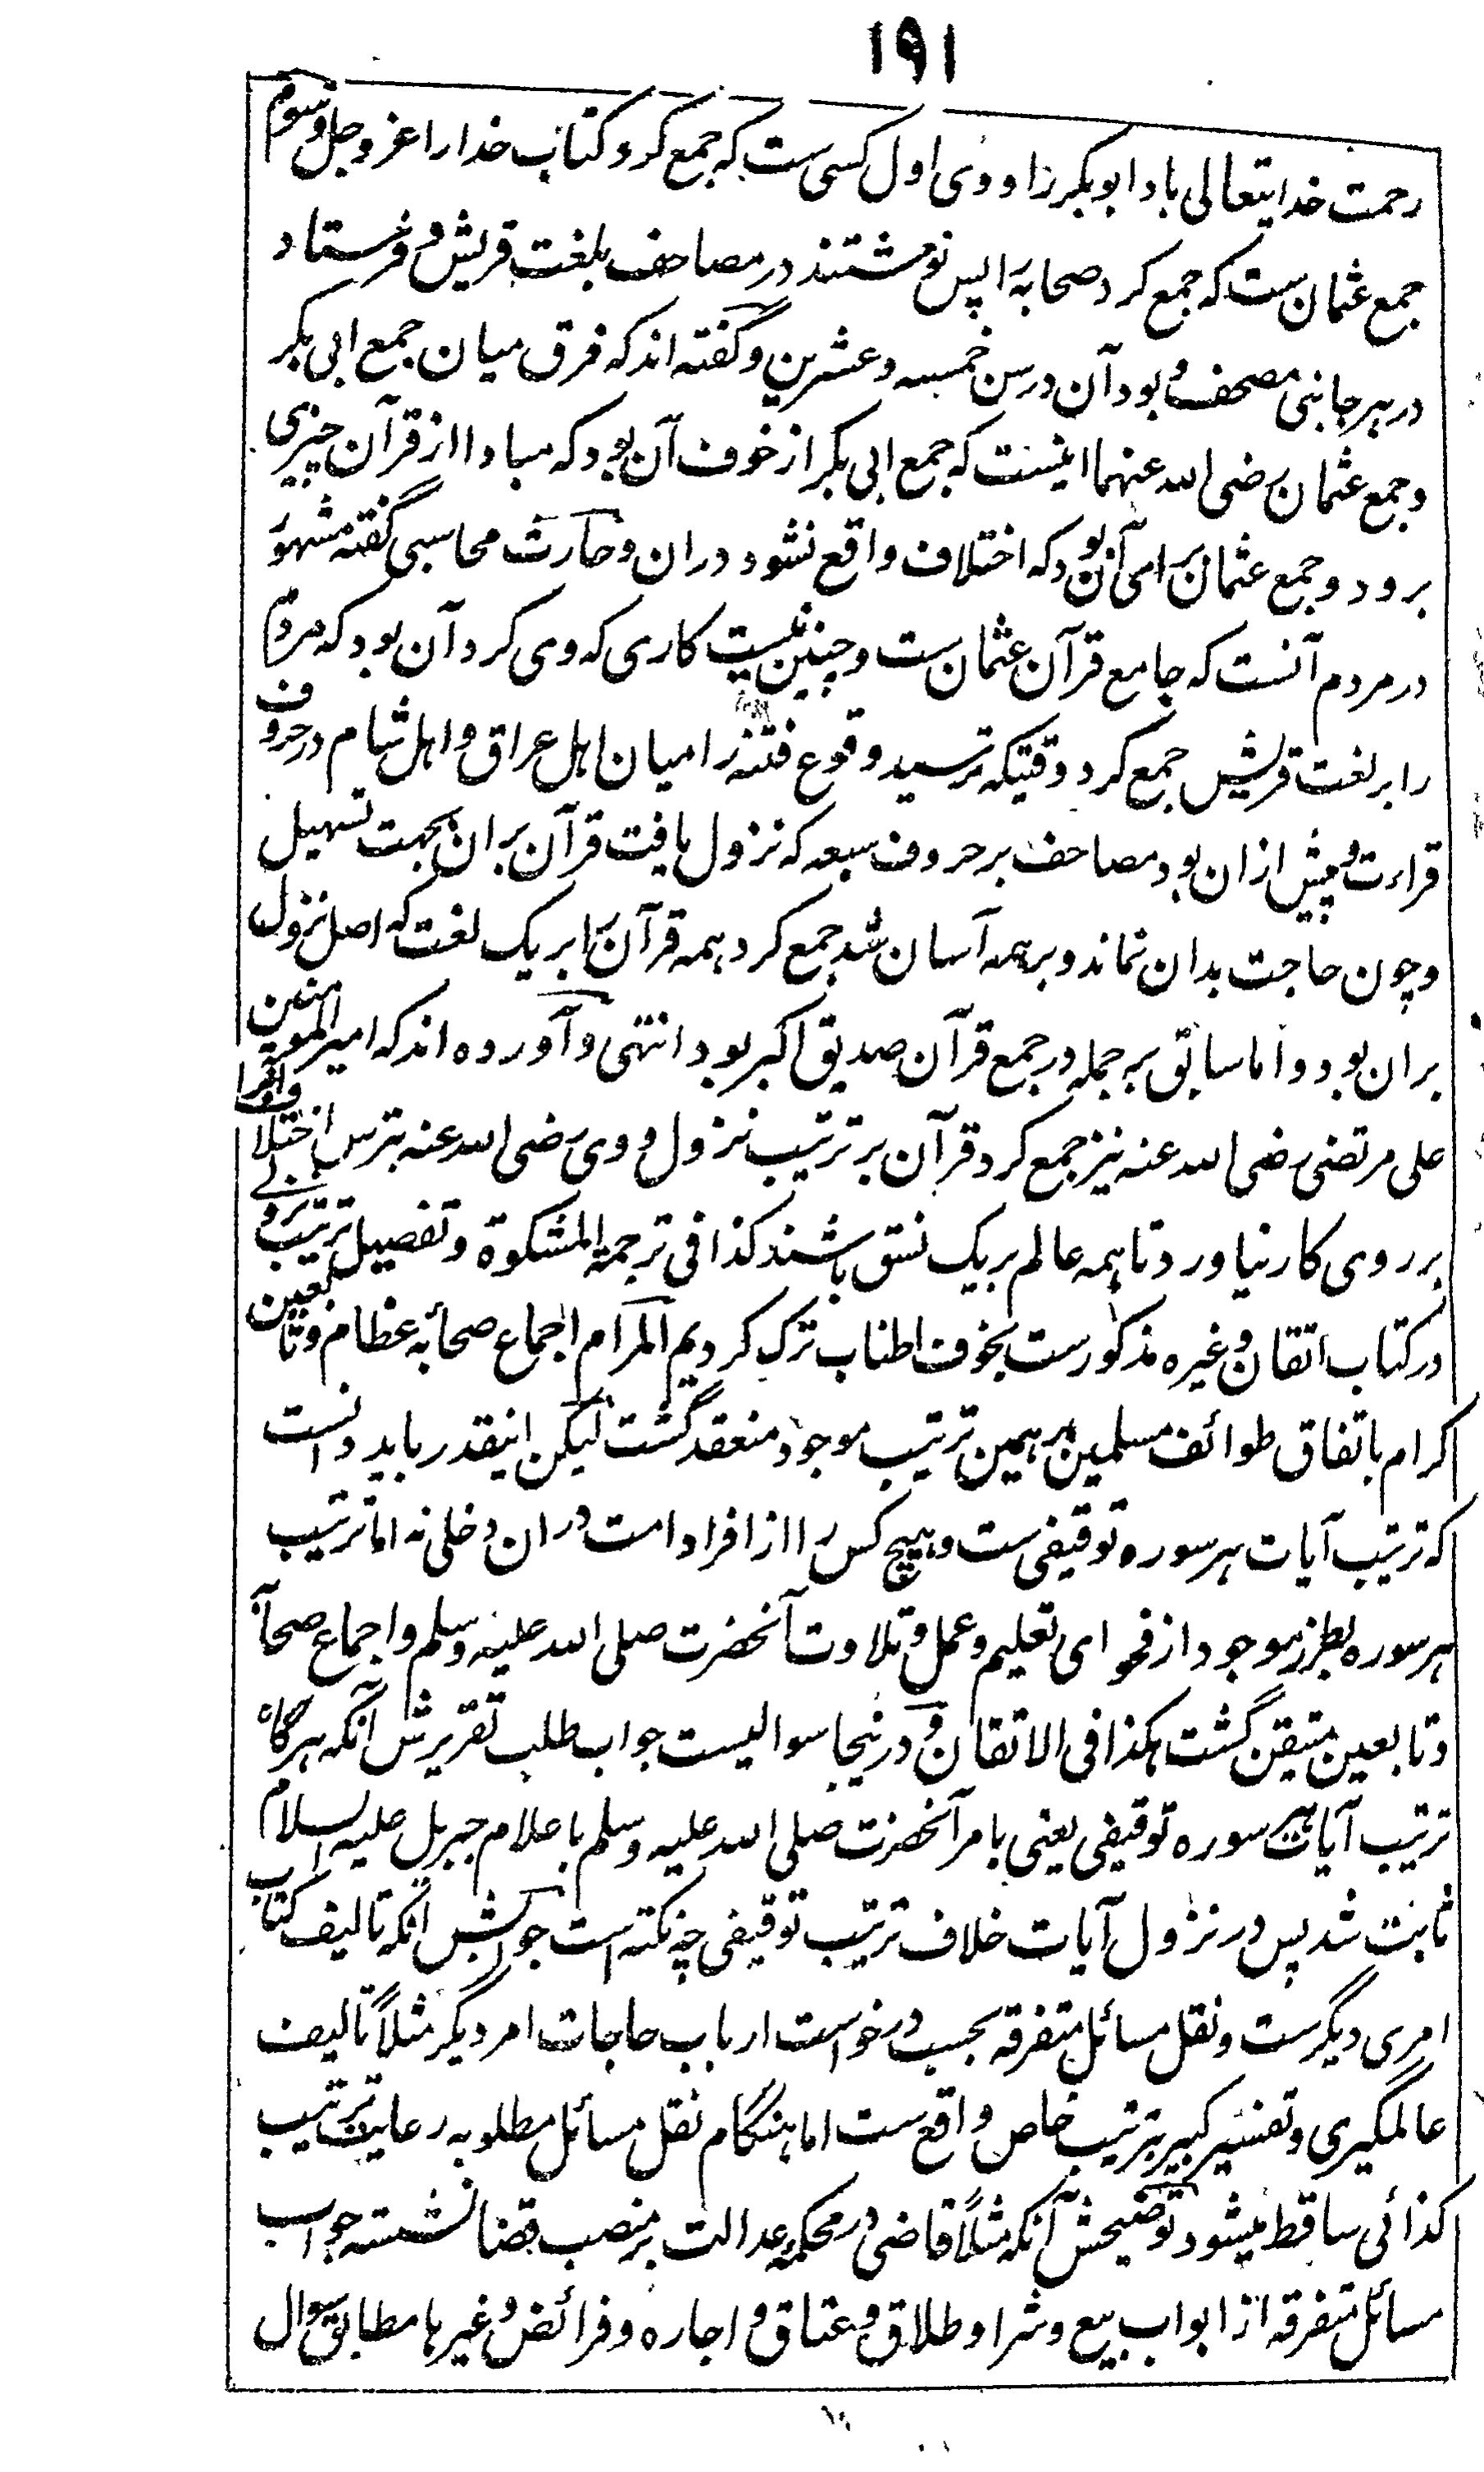 ۱۹۱
رحمت خدایتعالی باد ابوبکر را و وی اول کسی ست که جمع کرد کتاب خدا را عز و جل و سوم
جمع عثمان ست که جمع کرد صحابه را پس نوشتند در مصاحف بلغت قریش و فرستاد
در هر جانبی مصحف و بود آن در سن خمسه و عشرین و گفته اند که فرق میان جمع ابی بکر
و جمع عثمان رضی الله عنهما اینست که جمع ابی بکر از خوف آن بود که مبادا از قرآن چیزی
برود و جمع عثمان برای آن بود که اختلاف واقع نشود دران و حارث محاسبی گفته مشهور
در مردم آنست که جامع قرآن عثمان ست و چنین نیست کاری که وی کرد آن بود که مردم
را بر لغت قریش جمع کرد وقتیکه ترسید وقوع فتنه را میان اهل عراق و اهل شام در حروف
قراءت و پیش ازان بود مصاحف بر حروف سبعه که نزول یافت قرآن بران بجهت تسهیل
و چون حاجت بدان نماند و بر همه آسان شد جمع کرد همه قرآن را بر یک لغت که اصل نزول
بران بود و اما سابق بر جمله در جمع قرآن صدیق اکبر بود انتهی و آورده اند که امیر المومنین
علی مرتضی رضی الله عنه نیز جمع کرد قرآن بر ترتیب نزول و وی رضی الله عنه بترس اختلاف
بر روی کار نیاورد تا همه عالم بر یک نسق باشند کذا فی ترجمة المشکوة و تفصیل ترتیب نزولی
در کتاب اتقان و غیره مذکورست بخوف اطناب ترک کردیم المرام اجماع صحابه عظام و تابعین
کرام باتفاق طوائف مسلمین بر همین ترتیب موجود منعقد گشت لیکن اینقدر باید دانست
که ترتیب آیات هر سوره توقیفی ست و هیچ کس را از افراد امت دران دخلی نه اما ترتیب
هر سوره بطرز موجود از فحوای تعلیم و عمل و تلاوت آنحضرت صلی الله علیه وسلم و اجماع صحابه
و تابعین متیقن گشت هکذا فی الاتقان و درینجا سوالیست جواب طلب تقریرش آنکه هرگاه
ترتیب آیات هر سوره توقیفی یعنی بامر آنحضرت صلی الله علیه وسلم باعلام جبریل علیه السلام
ثابت شد پس در نزول آیات خلاف ترتیب توقیفی چه نکته است جوابش آنکه تالیف کتاب
امری دیگرست و نقل مسائل متفرقه بحسب درخواست ارباب حاجات امر دیگر مثلاً تالیف
عالمگیری و تفسیر کبیر بترتیب خاص واقع ست اما هنگام نقل مسائل مطلوبه رعایت ترتیب
کذائی ساقط میشود توضیحش آنکه مثلاً قاضی در محکمه عدالت بر منصب قضا نشسته جواب
مسائل متفرقه از ابواب بیع و شرا و طلاق و عتاق و اجاره و فرائض و غیرها مطابق سوال